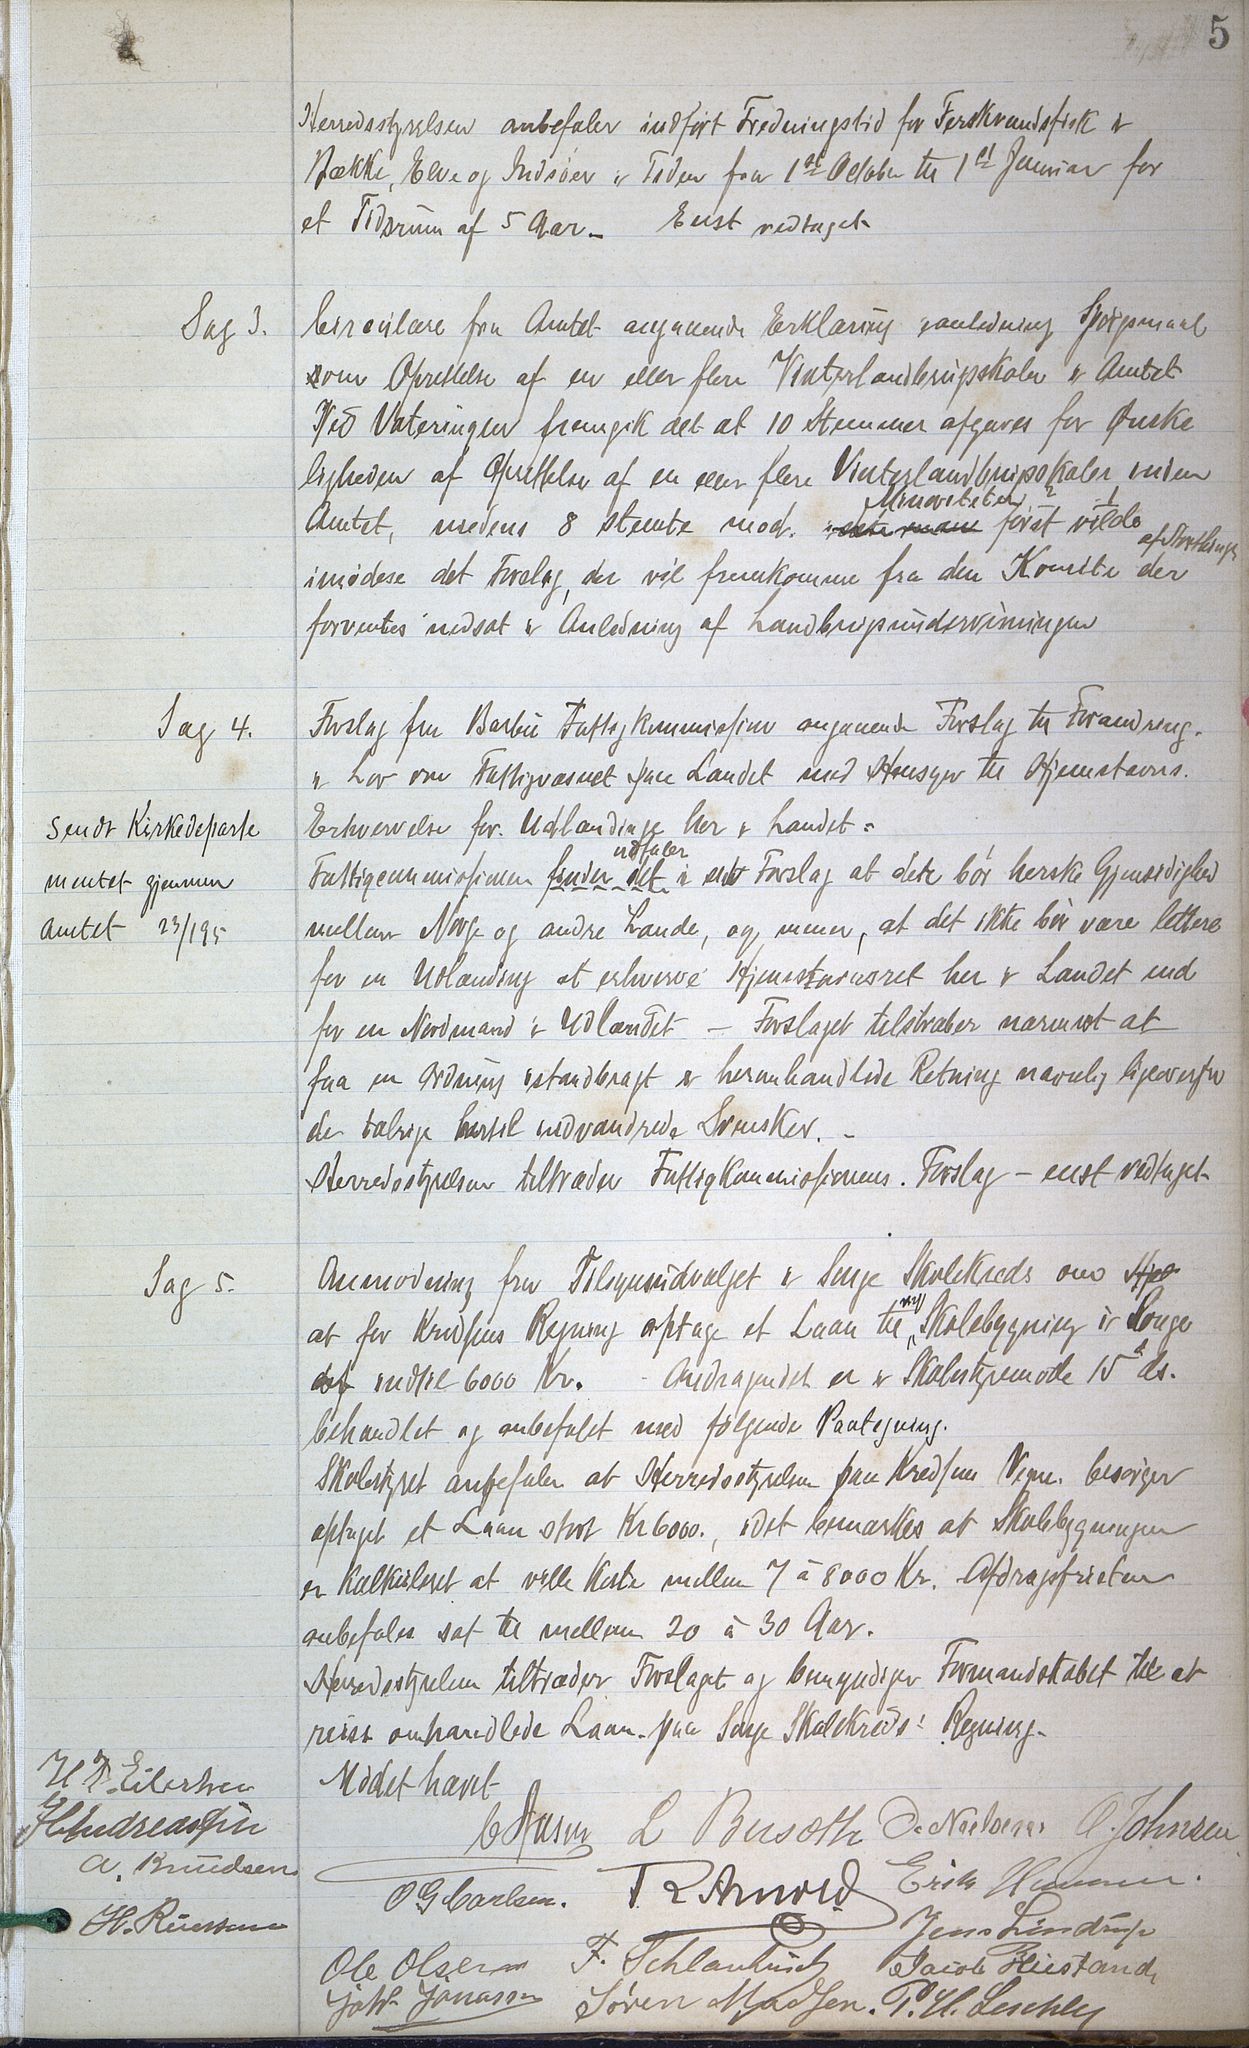 5
Herredsstyrelsen anbefaler indført Fredningstid for Ferskvandsfisk i
Bække, Elve og Indsøer i Tiden fra 1ste October til 1ste Januar for
et Tidsrum af 5 Aar. – Enst vedtaget
Sag 3.
Circulære fra Amtet angaaende Erklæring i anledning Spørgsmaal
om Oprettelse af en eller flere Vinterlandbrugsskoler i Amtet
Ved Voteringen fremgik det at 10 Stemmer afgaves for Ønske
ligheden af Oprettelse af en eller flere Vinterlandbrugsskoler inden
Amtet, medens 8 stemte mod. Minoriteten først vilde
imødese det Forslag, der vil fremkomme fra den Komite der af Storthinget
forventes nedsat i Anledning af Landbrugsundervisningen
Sag 4.
Forslag fra Barbu Fattigkommission angaaende Forslag til Forandring
i Lov om Fattigvæsnet paa Landet med Hensyn til Hjemstavns
Erhvervelse for Udlændinge her i Landet.
Sendt Kirkedeparte
mentet gjennem
Amtet 23/1 95
Fattigcommissionen finder det udtaler i sit Forslag at dete bør herske Gjensidighed
mellem Norge og andre Lande, og mener, at det ikke bør være lettere
for en Udlænding at erhverve Hjemstavnsret her i Landet end
for en Nordmand i Udlandet – Forslaget tilstræber nærmest at
faa en Ordning istandbragt i heromhandlede Retning navnlig ligeoverfor
de talrige hertil indvandrede Svensker. –
Herredsstyrelsen tiltræder Fattigkommissionens Forslag – enst vedtaget
Sag 5.
Anmodning fra Tilsynsudvalget i Songe Skolekreds om
at for Kredsens Regning optage et Laan til ny Skolebygning i Songe
indtil 6000 Kr. – Andragendet er i Skolestyremøde 15 ds.
behandlet og anbefalet med følgende Paategning.
Skolestyret anbefaler at Herredsstyrelsen paa Kredsens Vegne besørger
optaget et Laan stort Kr 6000., idet bemærkes at Skolebygningen
er kalkuleret at ville koste mellem 7 à 8000 Kr. Afdragsfristen
anbefales sat til mellem 20 à 30 Aar.
Herredsstyrelsen tiltræder Forslaget og bemyndiger Formandskabet til at
reise omhandlede Laan paa Songe Skolekreds' Regning.
Mødet hævet
H T. Eilertsen
H Andreassen
A. Knudsen
L Berseth D. Nielsen O. Johnsen
O G Carlsen. T R Arnold Erik
Jens Lindrup
Ole Olsen Jacob
Joh. Jonassen Søren Madsen. P. H.